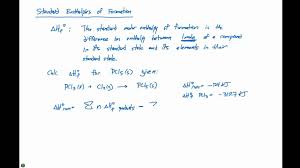 Standard Enthalpies of Formation
ΔHf° : The standard molar enthalpy of formation is the
difference in enthalpy between 1 mole of a compound
in its standard state and its elements in their
standard state.
Calc ΔHf° for PCl5(s) given:
PCl3(l) + Cl2(g) → PCl5(s)
ΔH°rxn = kJ
ΔHf° PCl3 = kJ
ΔH°rxn = Σ n ΔHf° products –